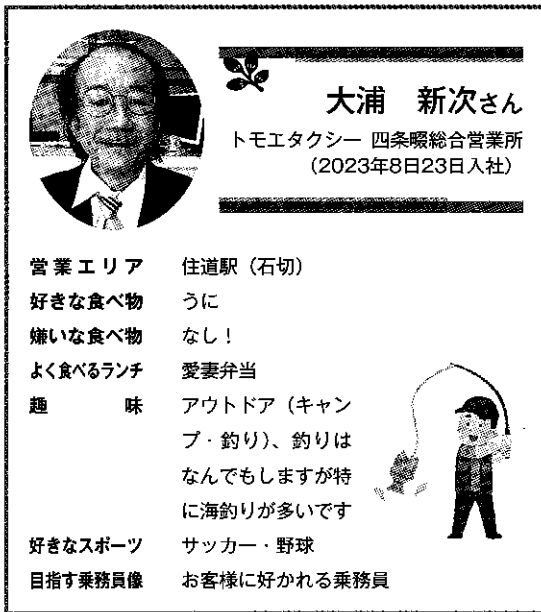 大浦 新次さん
トモエタクシー 四条畷総合営業所
(2023年8日23日入社)
営業エリア 住道駅(石切)
好きな食べ物 うに
嫌いな食べ物 なし!
よく食べるランチ 愛妻弁当
趣味 アウトドア(キャン
プ・釣り)、釣りは
なんでもしますが特
に海釣りが多いです
好きなスポーツ サッカー・野球
目指す乗務員像 お客様に好かれる乗務員